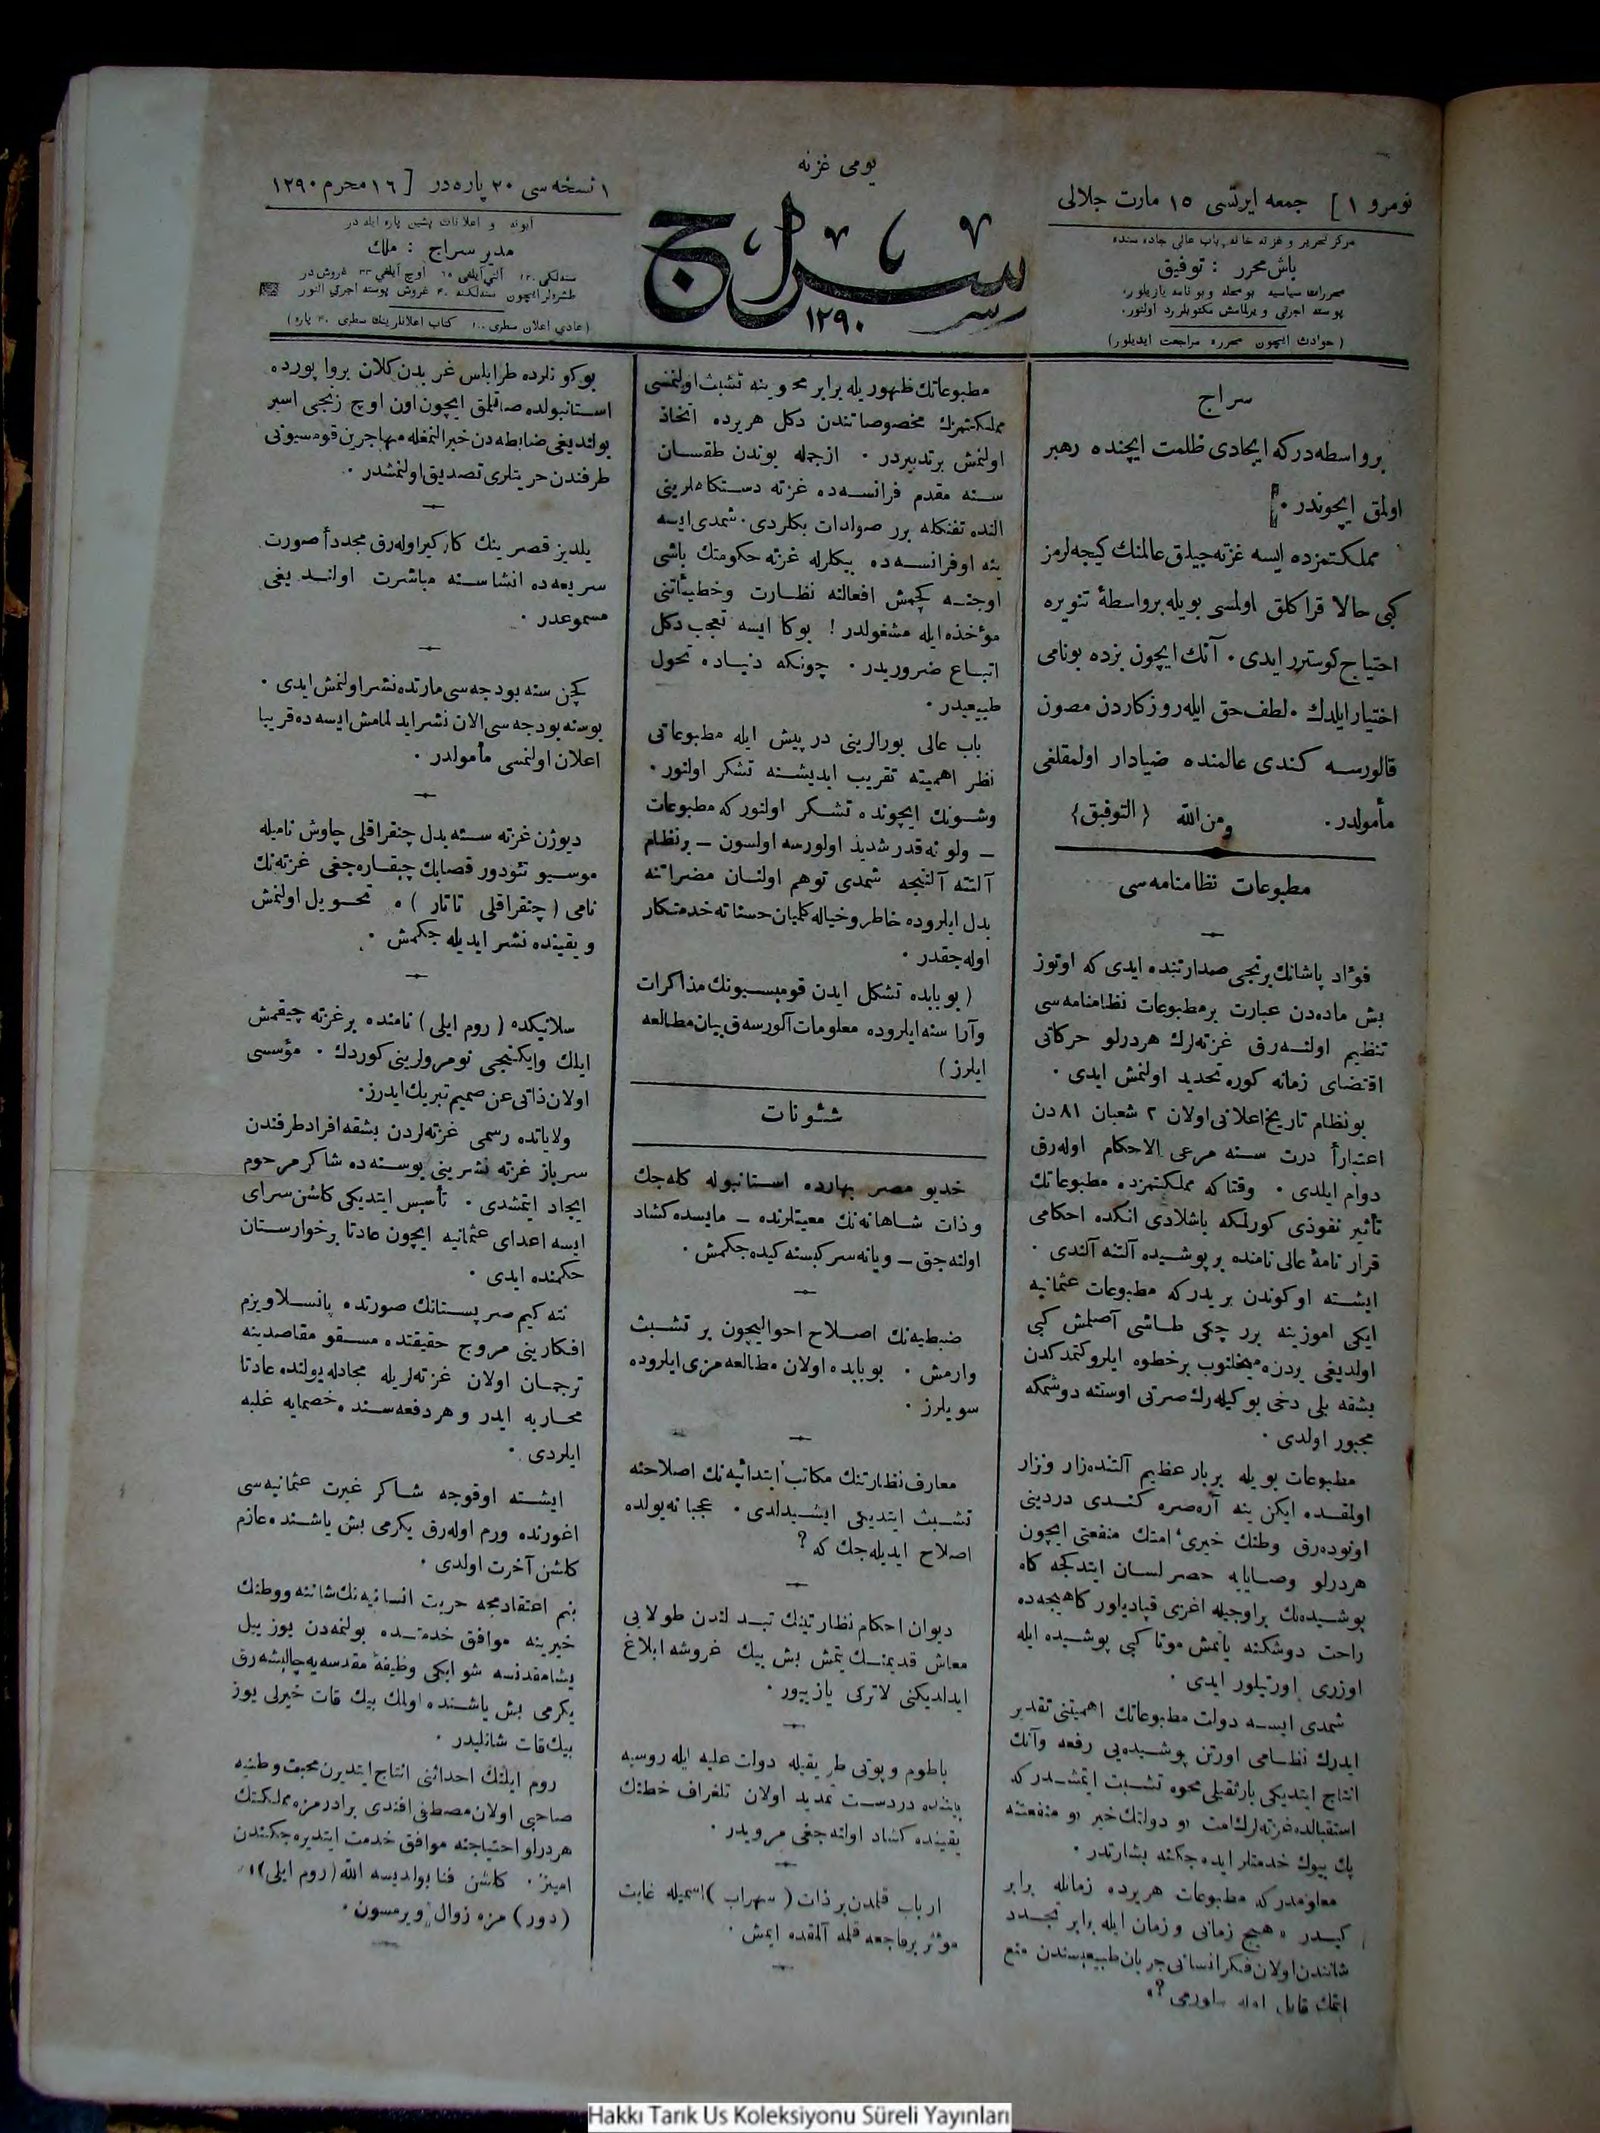 يومى غزته
نومرو ١] جمعه ايرتسى ١٥ مارت جلالى
١ نسخه سى ٢٠ پاره در [ ١٦ محرم ١٢٩٠
سراج
١٢٩٠
مركز تحرير و غزته خانه باب عالى جاده سنده
باش محرر : توفيق
پوسته اجرتى ويرلمامش مكتوبلر رد اولنور.
(حوادث ايچون محرره مراجعت ايديلور)
ابونه و اعلانات پشين پاره ايله در
مدير سراج : ملك
(عادى اعلان سطرى ١٠٠ كتاب اعلانلرينك سطرى ٤٠ پاره)
سراج
بر واسطه دركه ايجادى ظلمت ايچنده رهبر
اولمق ايچوندر .
مملكتمزده ايسه غزته جيلق عالمنك كيجه لرمز
كبى حالا قراكلق اولمسى بويله بر واسطهٔ تنويره
احتياج كوسترر ايدى . آنك ايچون بزده بونامى
اختيار ايلدك . لطف حق ايله روزكاردن مصون
قالورسه كندى عالمنده ضيادار اولمقلغى
مأمولدر. ومن الله {التوفيق}
مطبوعات نظامنامه سى
فؤاد پاشانك برنجى صدارتنده ايدى كه اوتوز
بش ماده دن عبارت بر مطبوعات نظامنامه سى
تنظيم اولنه رق غزته لرك هردرلو حركاتى
اقتضاى زمانه كوره تحديد اولنمش ايدى .
بونظام تاريخ اعلانى اولان ٢ شعبان ٨١ دن
اعتباراً درت سنه مرعى الاحكام اوله رق
دوام ايلدى . وقتاكه مملكتمزده مطبوعاتك
تأثير نفوذى كورلمكه باشلادى انكده احكامى
قرار نامهٔ عالى نامنده بر پوشيده آلتنه آلندى .
ايشته اوكوندن بريدركه مطبوعات عثمانيه
ايكى اموزينه برر چكى طاشى آصلمش كبى
اولديغى يردن ميخلنوب بر خطوه ايلرو كتمدكدن
بشقه بلى دخى بوكيله رك صرتى اوستنه دوشمكه
مجبور اولدى .
مطبوعات بويله بر بار عظيم آلتنده زار ونزار
اولمقده ايكن ينه آره صره كندى دردينى
اونوده رق وطنك خيرى امتك منفعتى ايچون
هردرلو وصايايه حصر لسان ايتدكجه كاه
پوشيده نك بر اوجيله اغزى قپاديلور كاهيجه ده
راحت دوشكنه ياتمش موتا كبى پوشيده ايله
اوزرى اورتيلور ايدى .
شمدى ايسه دولت مطبوعاتك اهميتنى تقدير
ايدرك نظامى اورتن پوشيده يى رفعه وآنك
انتاج ايتديكى بار ثقيلى محوه تشبث ايتمشدر كه
استقبالده غزته لرك امت و دولتك خير و منفعتنه
پك بيوك خدمتلر ايده جكنه بشارتدر .
معلومدر كه مطبوعات هر يرده زمانله برابر
كيدر . هيچ زمانى و زمان ايله برابر تجدد
شانندن اولان فكر انسانى جريان طبيعيسندن منع
ايتمك قابل اوله بيلورمى ؟
مطبوعاتك ظهوريله برابر محوينه تشبث اولنمسى
مملكتمزك مخصوصاتندن دكل هر يرده اتخاذ
اولنمش بر تدبيردر . ازجمله بوندن طقسان
سنه مقدم فرانسه ده غزته دستكاهلرينى
النده تفنكله برر صولدات بكلردى . شمدى ايسه
ينه او فرانسه ده بيكلرله غزته حكومتك باشى
اوجنه كچمش افعالنه نظارت وخطيئاتنى
مؤاخذه ايله مشغولدر ! بوكا ايسه تعجب دكل
اتباع ضروريدر . چونكه دنياده تحول
طبيعيدر .
باب عالى بورالرينى درپيش ايله مطبوعاتى
نظر اهميته تقريب ايديشنه تشكر اولنور .
وشونك ايچونده تشكر اولنور كه مطبوعات
– ولو نه قدر شديد اولورسه اولسون – بر نظام
آلتنه آلنيجه شمدى توهم اولنان مضراتنه
بدل ايلروده خاطر و خياله كلميان حسناته خدمتكار
اوله جقدر .
(بوبابده تشكل ايدن قوميسيونك مذاكرات
وآراسنه ايلروده معلومات آلورسه ق بيان مطالعه
ايلرز)
شئونات
خديو مصر بهارده استانبوله كله جك
وذات شاهانه نك معيتلرنده – مايسده كشاد
اولنه جق – ويانه سركيسنه كيده جكمش .
ضبطيه نك اصلاح احواليچون بر تشبث
وارمش . بوبابده اولان مطالعه مزى ايلروده
سويلرز .
معارف نظارتنك مكاتب ابتدائيه نك اصلاحنه
تشبث ايتديكى ايشيدلدى . عجبا نه يولده
اصلاح ايديله جك كه ؟
ديوان احكام نظارتينك تبدلندن طولايى
معاش قديمنك يتمش بش بيك غروشه ابلاغ
ايدلديكنى لاتركى يازيور .
باطوم و پوتى طريقيله دولت عليه ايله روسيه
بيننده دردست تمديد اولان تلغراف خطنك
يقينده كشاد اولنه جغى مرويدر .
ارباب قلمدن بر ذات (سهراب) اسميله غايت
مؤثر بر فاجعه قلمه آلمقده ايمش .
بوكونلرده طرابلس غربدن كلان بر واپورده
استانبولده صاتلمق ايچون اون اوچ زنجى اسير
بولنديغى ضابطه دن خبر النمغله مهاجرين قومسيونى
طرفندن حريتلرى تصديق اولنمشدر .
يلديز قصرينك كاركير اوله رق مجدداً صورت
سريعه ده انشاسنه مباشرت اولنديغى
مسموعدر .
كچن سنه بودجه سى مارتده نشر اولنمش ايدى .
بوسنه بودجه سى الان نشر ايدلمامش ايسه ده قريبا
اعلان اولنمسى مأمولدر .
ديوژن غزته سنه بدل چنقراقلى چاوش ناميله
موسيو تئودور قصابك چيقاره جغى غزته نك
نامى (چنقراقلى تاتار) ه تحويل اولنمش
ويقينده نشر ايديله جكمش .
سلانيكده (روم ايلى) نامنده بر غزته چيقمش
ايلك وايكنجى نومرولرينى كوردك . مؤسسى
اولان ذاتى عن صميم تبريك ايدرز.
ولاياتده رسمى غزته لردن بشقه افراد طرفندن
سرباز غزته نشرينى بوسنه ده شاكر مرحوم
ايجاد ايتمشدى . تأسيس ايتديكى كلشن سراى
ايسه اعداى عثمانيه ايچون عادتا بر خوارستان
حكمنده ايدى .
نته كيم صرپستانك صورتده پانسلاويزم
افكارينى مروج حقيقتده مسقو مقاصدينه
ترجمان اولان غزته لريله مجادله يولنده عادتا
محاربه ايدر و هر دفعه سنده خصمايه غلبه
ايلردى .
ايشته اوقوجه شاكر غيرت عثمانيه سى
اغورنده ورم اوله رق يكرمى بش ياشنده عازم
كلشن آخرت اولدى .
بنم اعتقادمجه حريت انسانيه نك شاننه ووطنك
خيرينه موافق خدمتده بولنمه دن يوز ييل
يشامقدنسه شو ايكى وظيفهٔ مقدسه يه چاليشه رق
يكرمى بش ياشنده اولمك بيك قات خيرلى يوز
بيك قات شانليدر .
روم ايلنك احداثنى انتاج ايتديرن محبت وطنيه
صاحبى اولان مصطفى افندى برادرمزه مملكتك
هردرلو احتياجنه موافق خدمت ايتديره جكندن
امينز . كلشن فنا بولديسه الله (روم ايلى)
(دور) مزه زوال ويرمسون .
Hakkı Tarık Us Koleksiyonu Süreli Yayınları